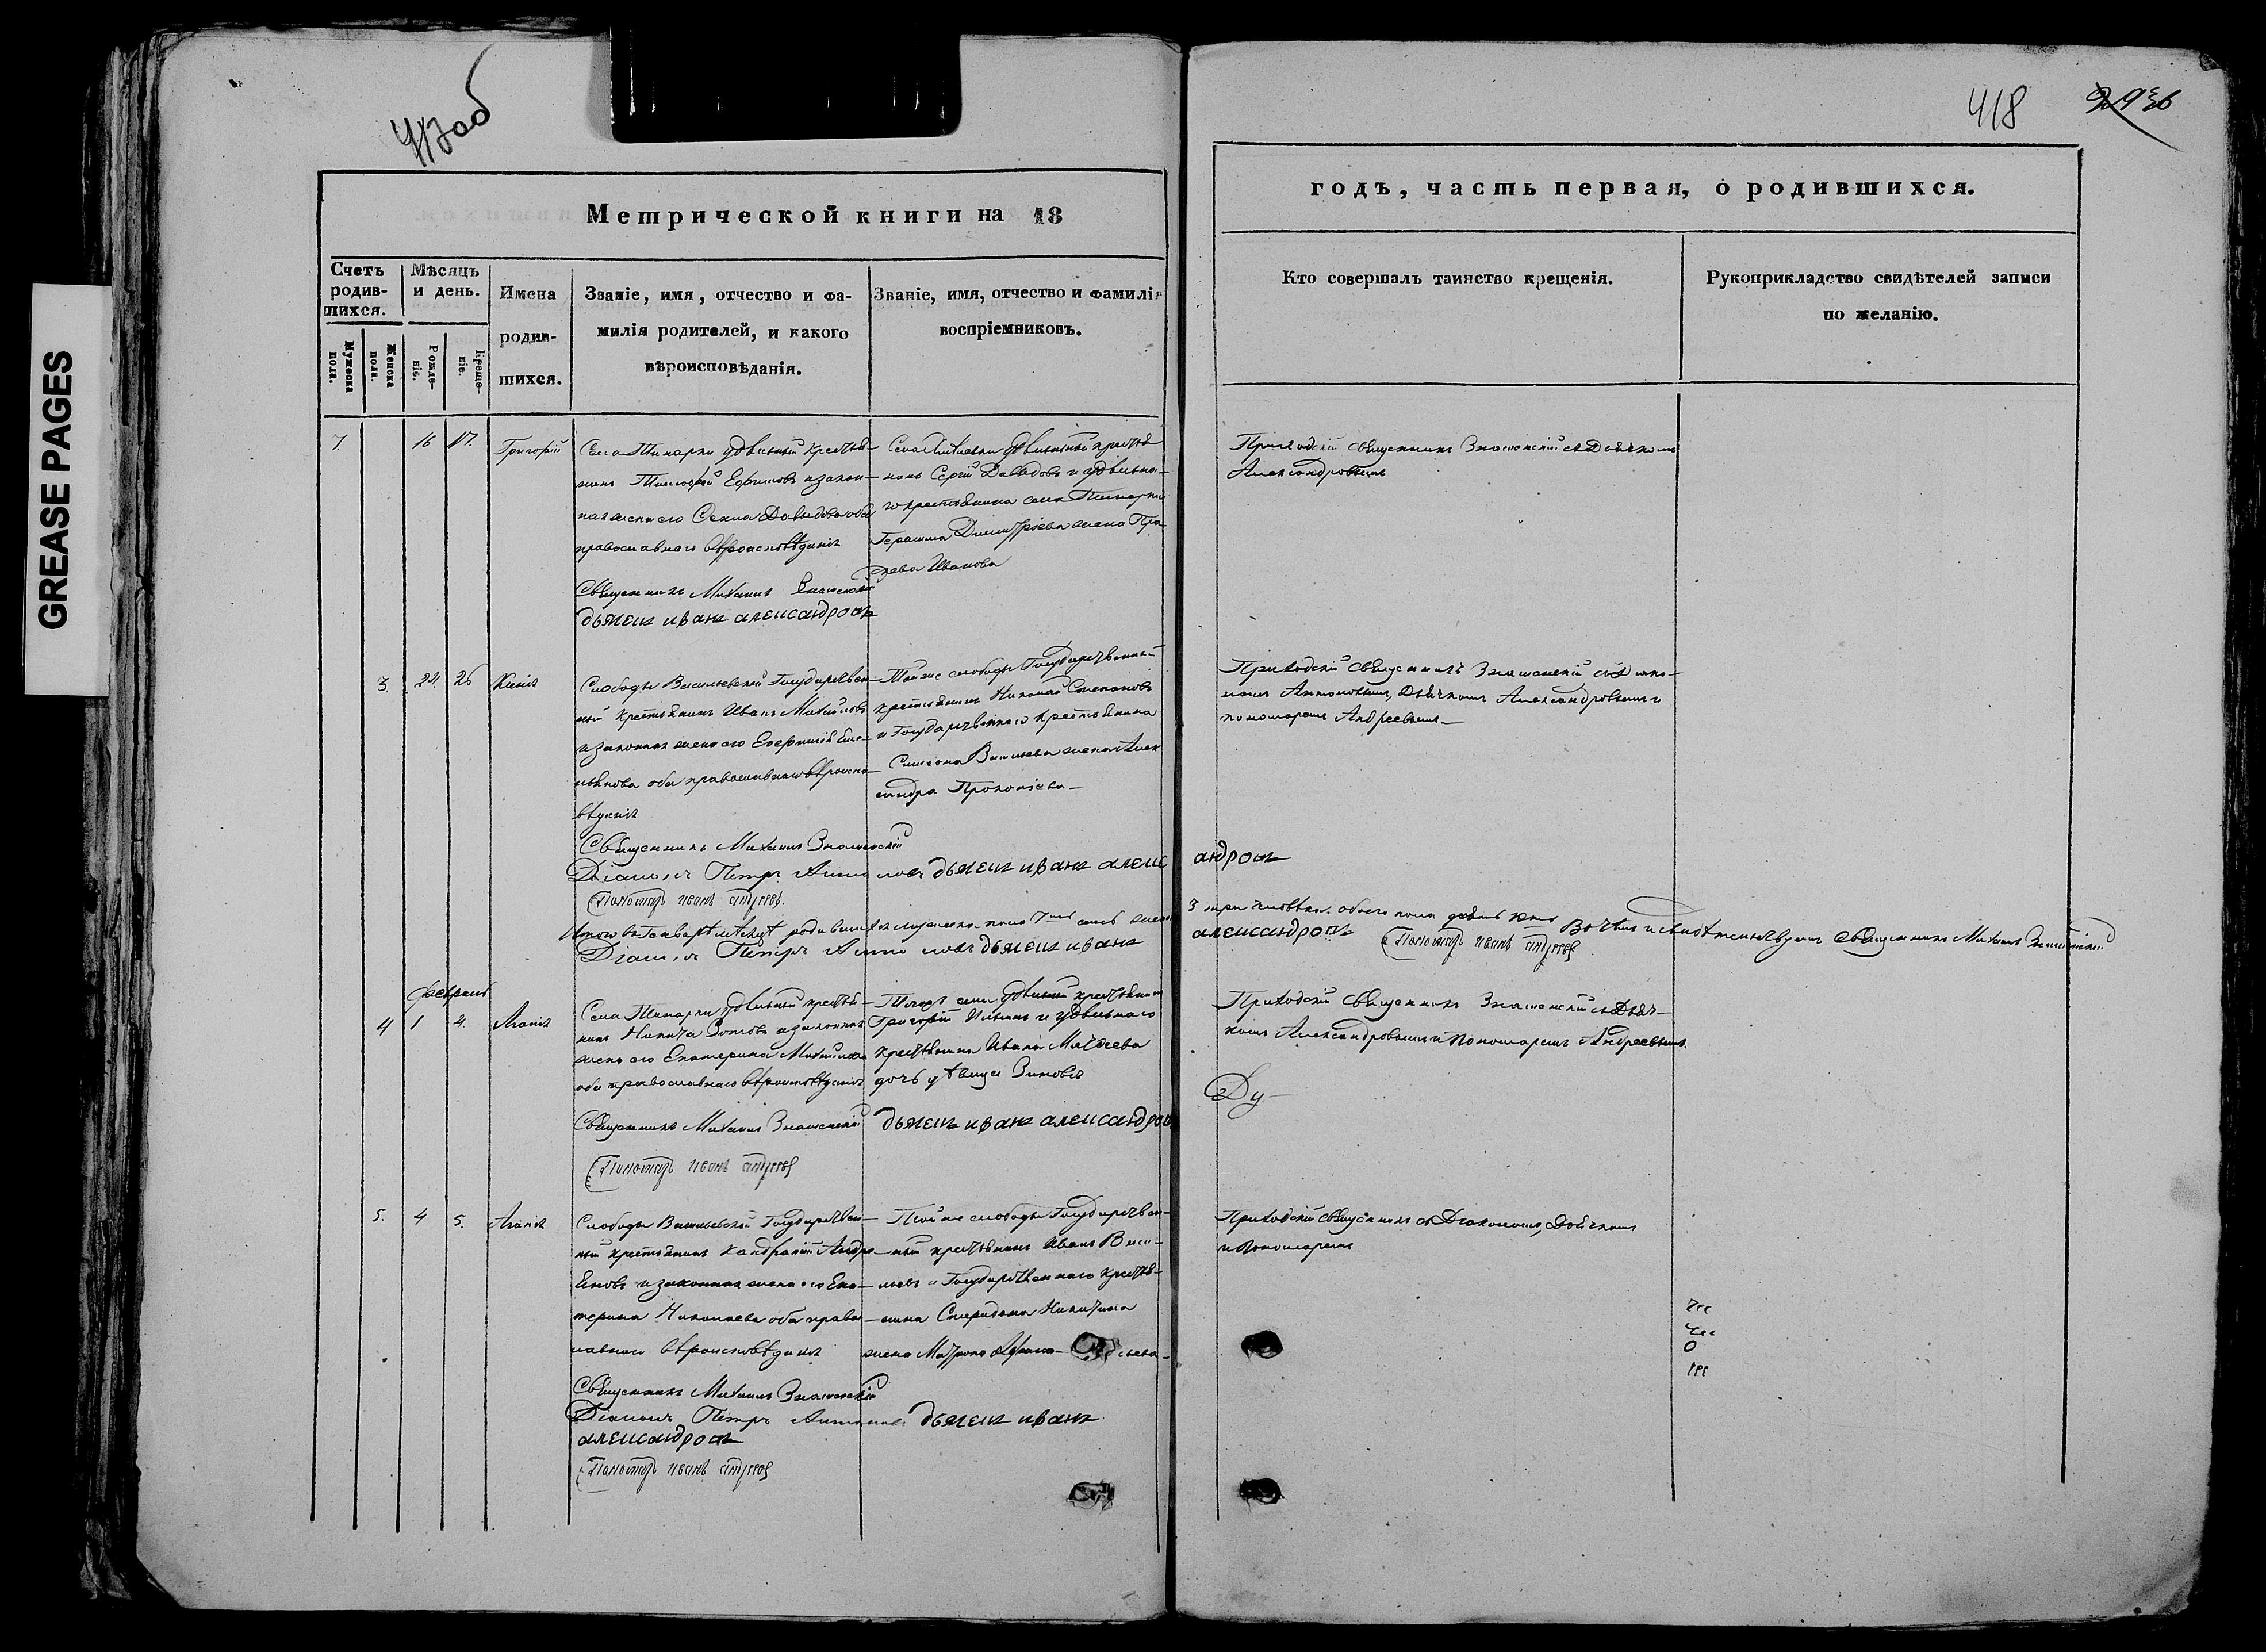 GREASE PAGES
417 об
418
Метрической книги на 18
годъ, часть первая, о родившихся.
Счетъ родив-
шихся.
Мужеска пола.
Женска пола.
Мѣсяцъ
и день.
Рожде-
ніе.
Креще-
ніе.
Имена
родив-
шихся.
Званіе, имя, отчество и фа-
милія родителей, и какого
вѣроисповѣданія.
Званіе, имя, отчество и фамилія
воспріемниковъ.
Кто совершалъ таинство крещенія.
Рукоприкладство свидѣтелей записи
по желанію.
7. 16 17. Григорій
Села удѣльный крестья-
нинъ Тимофей Ефимовъ и закон-
ная жена его Давыдова оба
православнаго вѣроисповѣданія
Священникъ Михаилъ Знаменскій
дьячекъ иванъ александровъ
удѣльный крестья-
нинъ Сергій Давыдовъ и удѣльна-
го крестьянина села
Герасима Димитріева жена Пра-
Иванова
Приходскій священникъ Знаменскій съ Дьячкомъ
Александровымъ
3 24. 26 Ксенія
Слободы Васильевской Государствен-
ный крестьянинъ Иванъ Михайловъ
и законная жена его Евфимія Еме-
льянова оба православнаго вѣроиспо-
вѣданія
Священникъ Михаилъ Знаменскій
Діаконъ Петръ дьячекъ иванъ александровъ
Пономарь иванъ андреевъ
Той же слободы Государственный
крестьянинъ Николай Степановъ
и Государственнаго крестьянина
Симеона Васильева жена Алек
сандра Прокопіева
Приходскій священникъ Знаменскій съ Діако-
номъ Антоновымъ, Дьячкомъ Александровымъ и
пономаремъ Андреевымъ
Итого въ Генварѣ мѣсяцѣ родившихся мужеска пола 7 семь
3 три обоего пола
священникъ Михаилъ Знаменскій
Діаконъ Петръ дьячекъ иванъ александровъ
Пономарь иванъ андреевъ
Февраль
4 1 4. Агапія
Села удѣльный крестья-
нинъ Никита Зотовъ и законная
жена его Екатерина Михайлова
оба православнаго вѣроисповѣданія
Священникъ Михаилъ Знаменскій дьячекъ иванъ александров
Пономарь иванъ андреевъ
Тогожъ села удѣльный крестьянинъ
Григорій Ильинъ и удѣльнаго
крестьянина Ивана Матвеева
дочь дѣвица Зиновія
Приходскій священникъ Знаменскій съ Дьяч-
комъ Александровымъ и Пономаремъ Андреевымъ.
5. 4 5. Агафія
Слободы Васильевской Государствен-
ный крестьянинъ Андре-
яновъ и законная жена его Ека-
терина Николаева оба правос-
лавнаго вѣроисповѣданія
Священникъ Михаилъ Знаменскій
Діаконъ Петръ дьячекъ иванъ
александровъ
Пономарь иванъ андреевъ
Той же слободы Государствен-
ный крестьянинъ Иванъ Васи-
льевъ и Государственнаго крестья-
нина Спиридона Никитина
жена Матрона
Приходскій священникъ съ Діакономъ, Дьячкомъ
и Пономаремъ